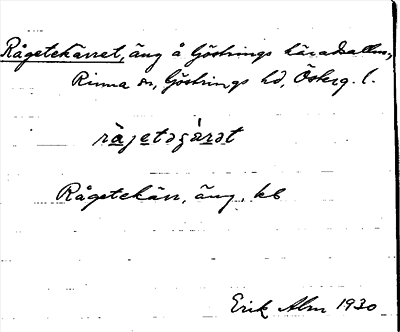 Rågetekärret, äng å Göstrings häradsallm.,
Rinna sn, Göstrings hd, Österg. l.
ràjetəgárət
Rågetekärr, äng, kb
Erik Alm 1930